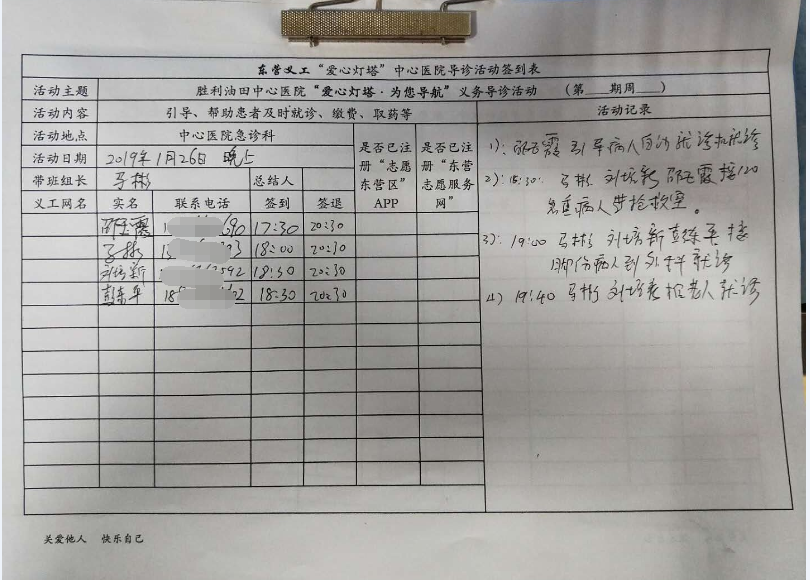 东营义工“爱心灯塔”中心医院导诊活动签到表
活动主题 胜利油田中心医院“爱心灯塔·为您导航”义务导诊活动 （第 期周 ）
活动内容 引导、帮助患者及时就诊、缴费、取药等 活动记录
活动地点 中心医院急诊科
活动日期 2019年1月26日 晚
带班组长 马彬 总结人
是否已注册“志愿东营区”APP
是否已注册“东营志愿服务网”
义工网名 实名 联系电话 签到 签退
霞 1 690 17:30 20:30
马彬 15 393 18:00 20:30
刘培新 2592 18:30 20:30
彭东军 18 02 18:30 20:30
1): 霞 引导病人自助就诊机就诊
2): 18:30: 马彬 刘培新 霞接120
急重病人 抢救室。
3): 19:00 马彬 刘培新 彭东军 接
脚伤病人到外科就诊
4) 19:40 马彬 刘培新 老人就诊
关爱他人 快乐自己